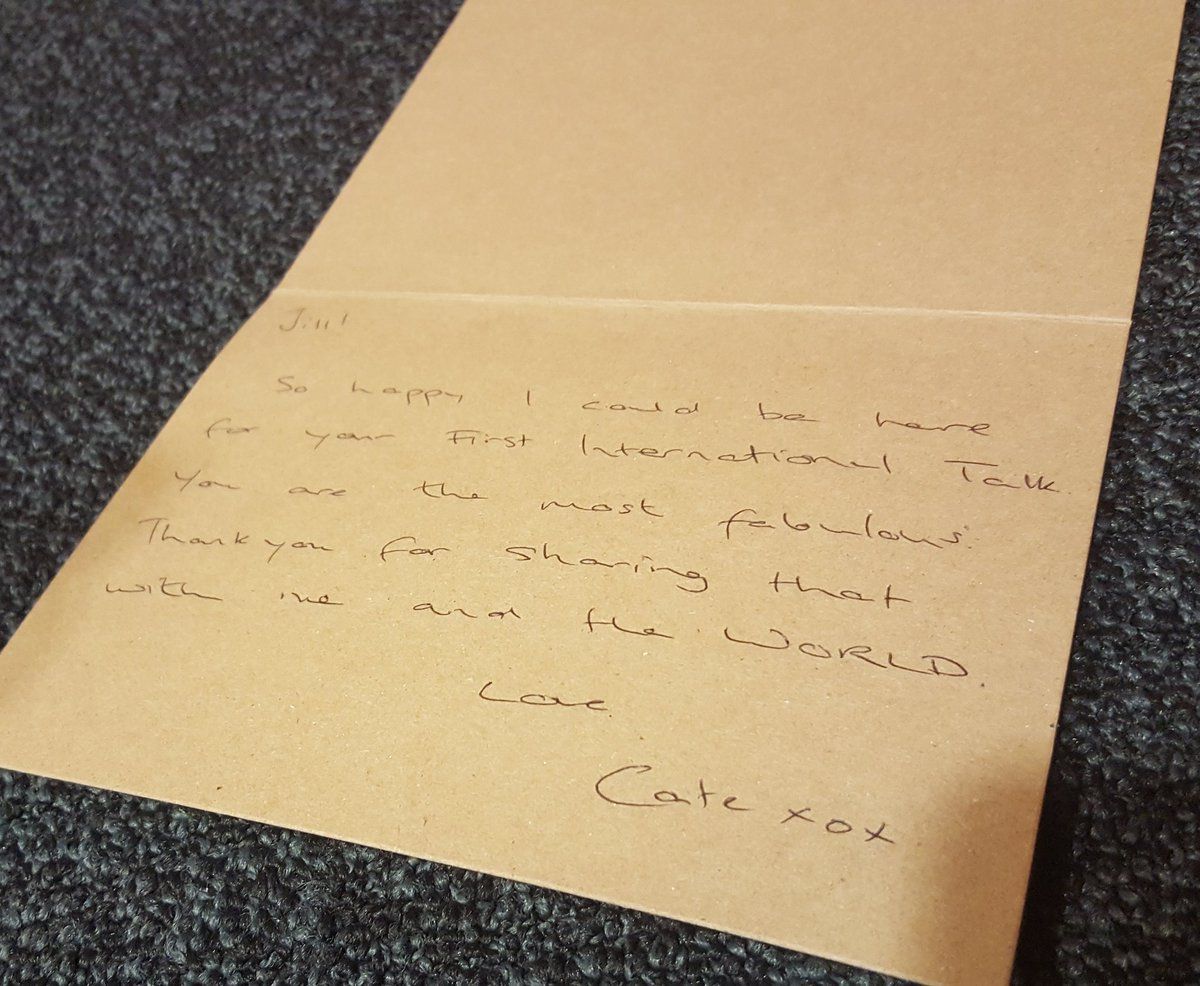 Jill!
So happy I could be here
for your First International Talk.
You are the most fabulous.
Thank you for sharing that
with me and the WORLD.
Love
Cate xox